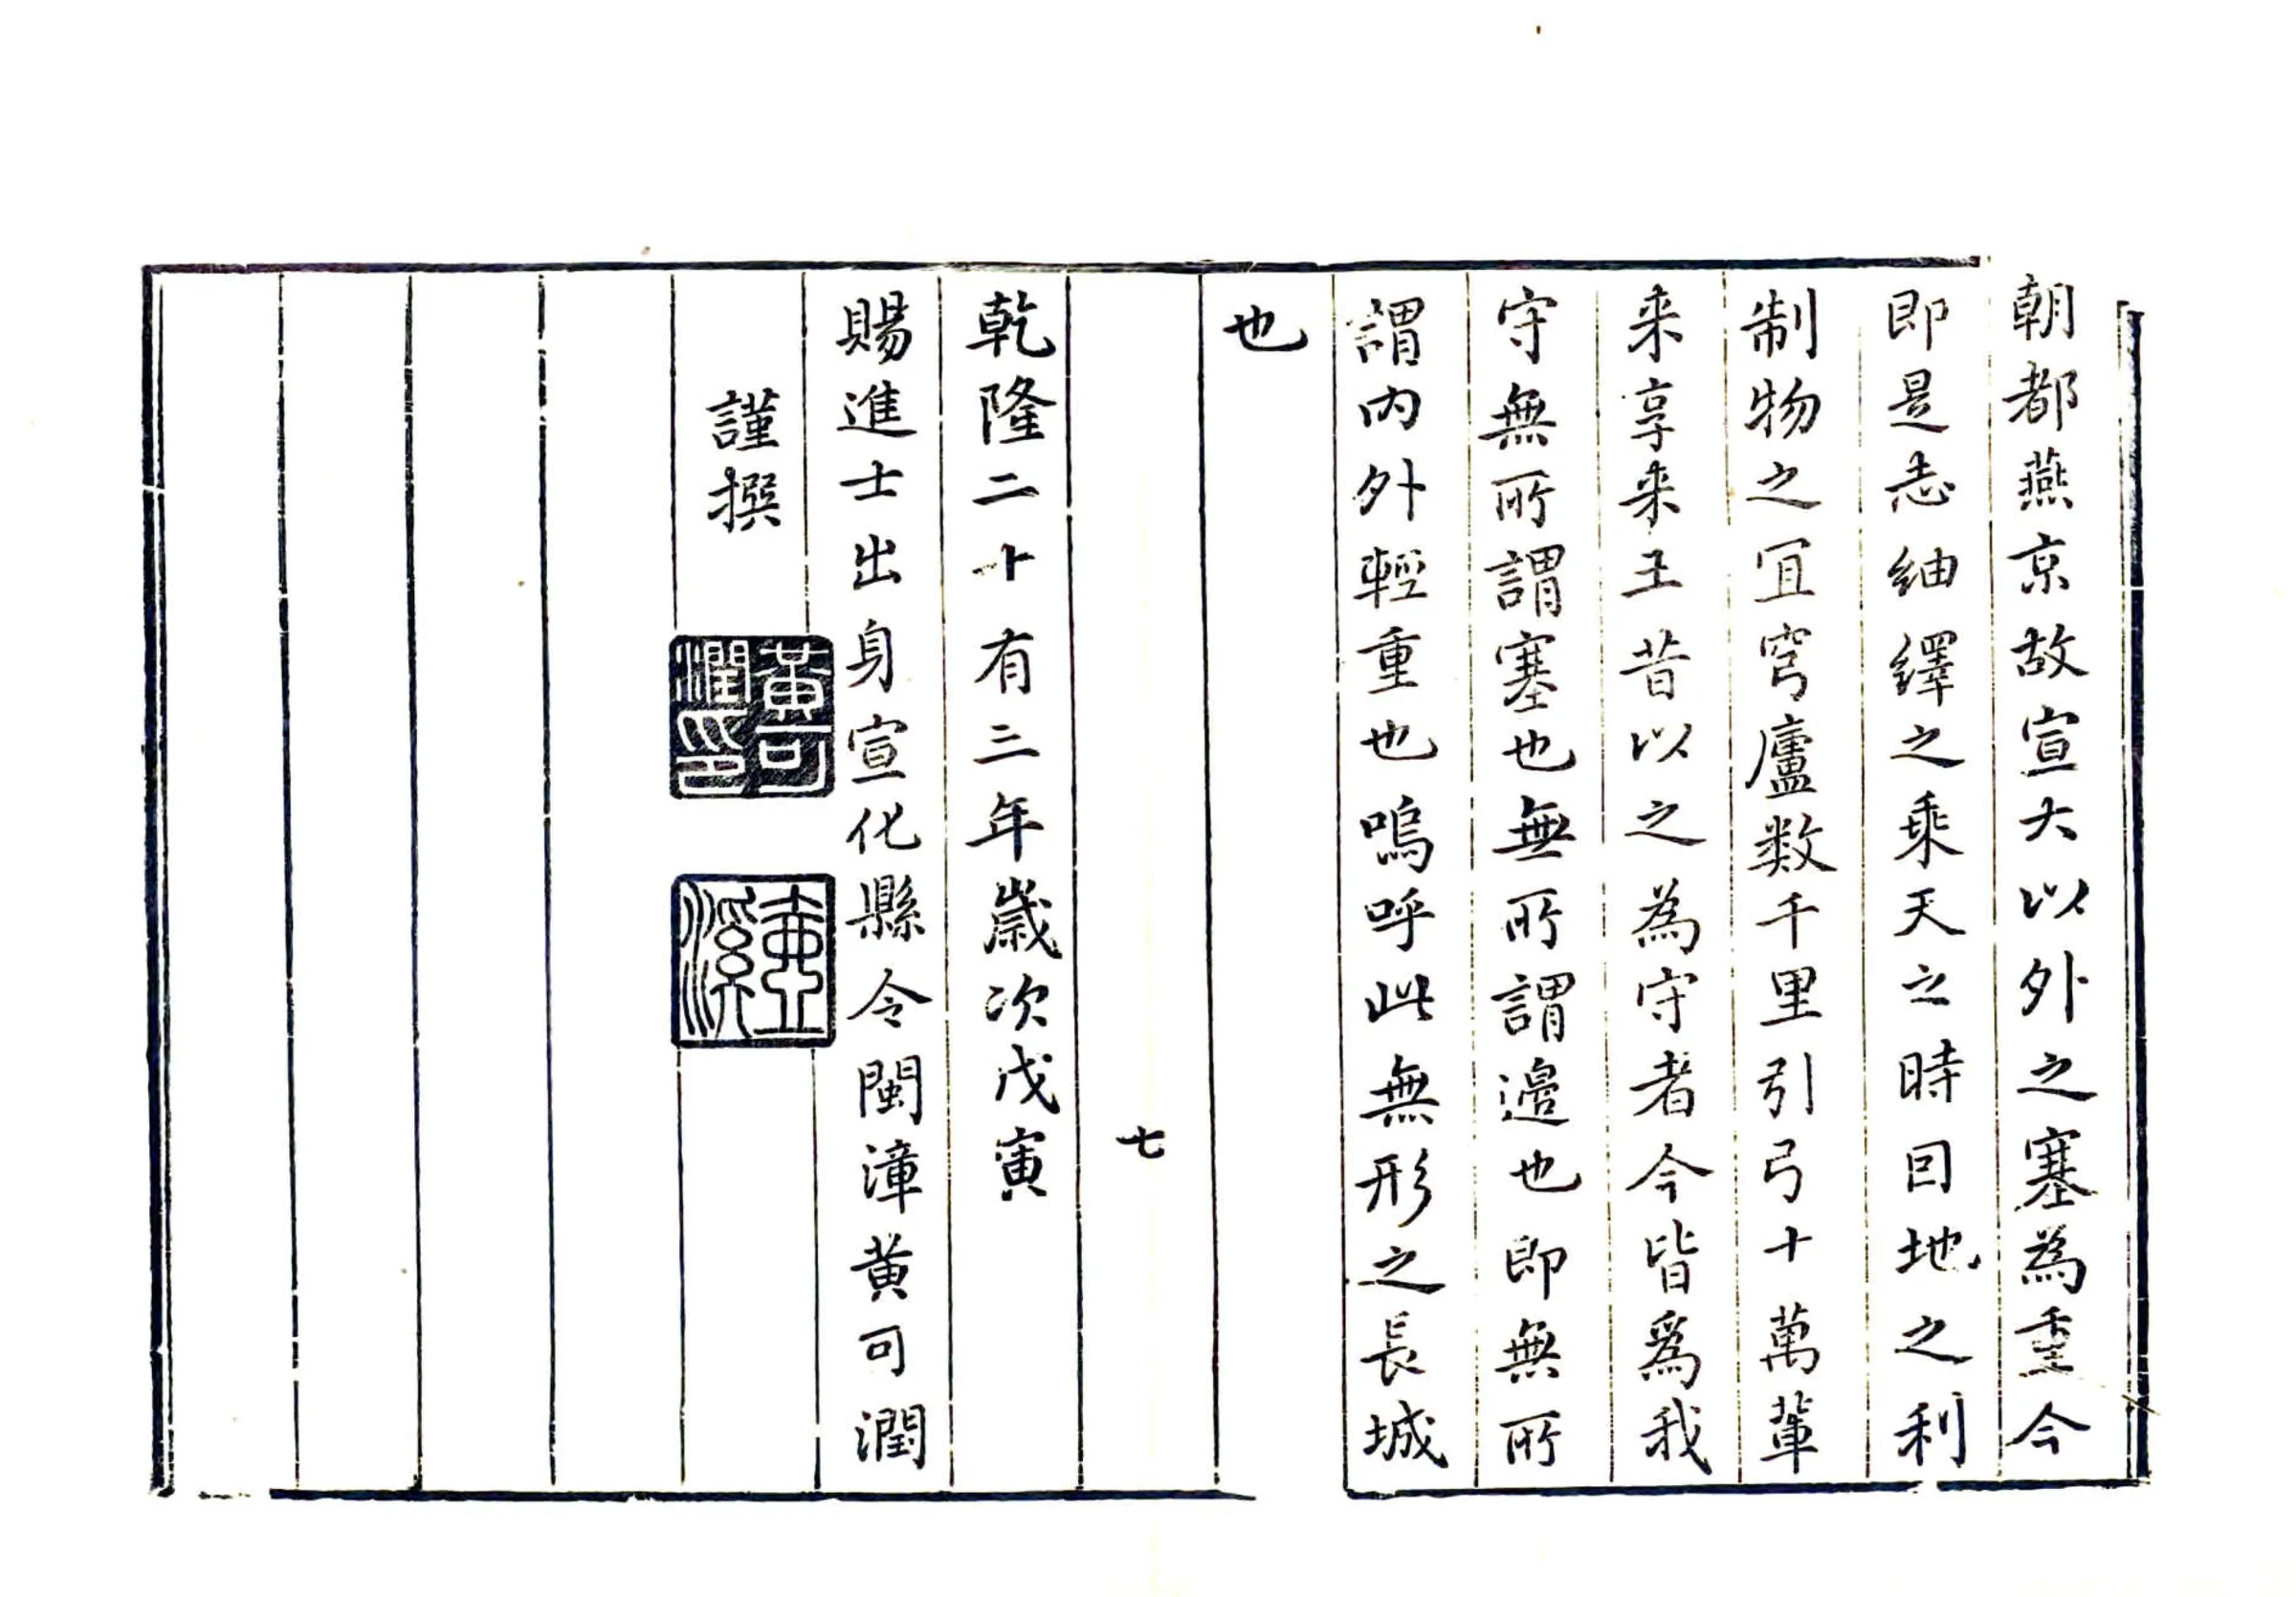 朝都燕京故宣大以外之塞為重今
即是志紬繹之乘天之時因地之利
制物之宜穹廬数千里引弓十萬輩
来享来王昔以之為守者今皆爲我
守無所謂塞也無所謂邉也即無所
謂内外輕重也嗚呼此無形之長城
也
七
乾隆二十有三年歲次戊寅
賜進士出身宣化縣令閩漳黄可潤
謹撰
黃可
潤印
壺
溪